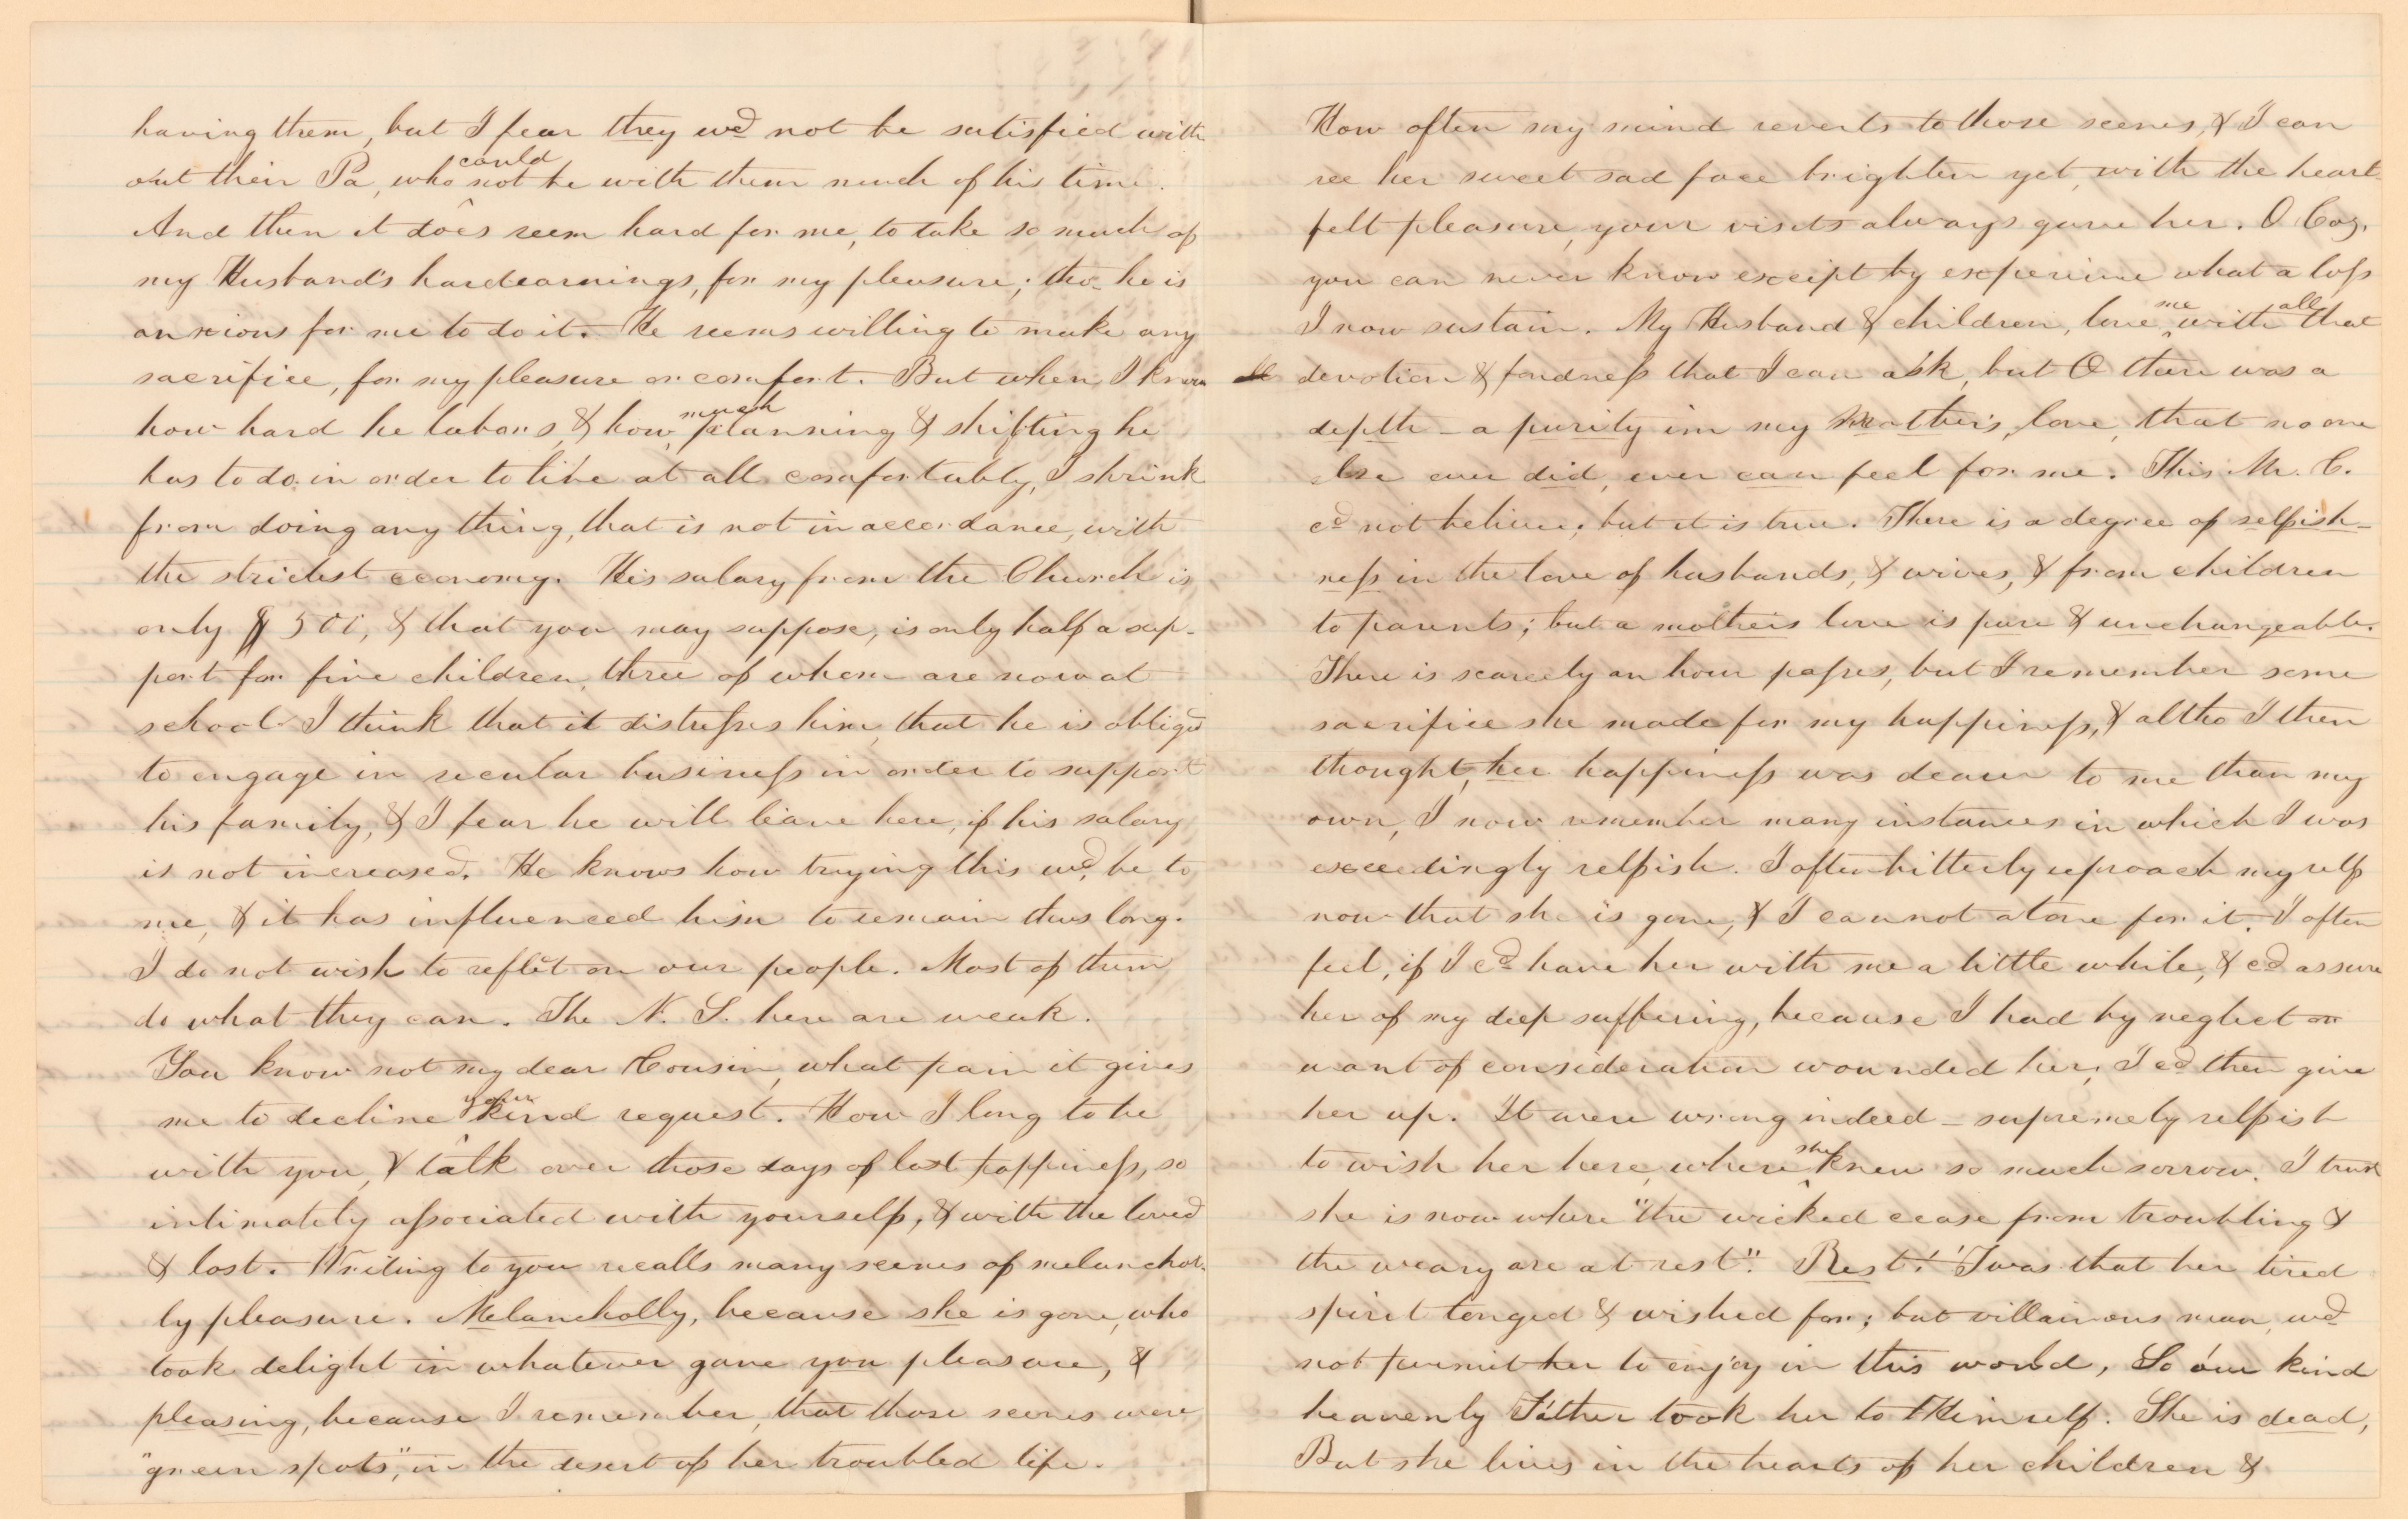 having them, but I fear they wd not be satisfied with
out their Pa, who could not be with them much of his time.
And then it does seem hard for me, to take so much of
my Husband's hardearnings, for my pleasure; tho- he is
anxious for me to do it. He seems willing to make any
sacrifice, for my pleasure or comfort. But when I know
how hard he labors & how much planning & shifting he
has to do in order to live at all comfortably, I shrink
from doing any thing, that is not in accordance, with
the strictest economy. His salary from the Church is
only $ 500, & that you may suppose, is only half a sup-
port for five children, three of whom are now at
school I think that it distresses him, that he is obliged
to engage in secular business in order to support
his family, & I fear he will leave here, if his salary
is not increased. He knows how trying this wd, be to
me, & it has influenced him to remain thus long.
I do not wish to reflect on our people. Most of them
do what they can. The N. S. here are weak.
You know not my dear Cousin, what pain it gives
me to decline your kind request. How I long to be
with you, & talk over those days of lost happiness, so
intimately associated with yourself, & with the loved
& lost. Writing to you recalls many scenes of melanchol-
ly pleasure. Melancholly, because she is gone, who
took delight in whatever gave you pleasure, &
pleasing, because I remember, that those scenes were
"green spots", in the desert of her troubled life.
How often my mind reverts to those scenes, & I can
see her sweet sad face brighten yet, with the heart-
felt pleasure, your visits always gave her. O Coz,
you can never know except by experience what a loss
I now sustain. My Husband & children, love me with all that
devotion & fondness that I can ask, but O there was a
depth - a purity in my Mother's, love, that no one
else ever did, ever can feel for me. This Mr. C.
cd not believe; but it is true. There is a degree of selfish-
ness in the love of husbands, & wives, & from children
to parents; but a mother's love is pure & unchangeable.
There is scarcely an hour passes, but I remember some
sacrifice she made for my happiness, & altho I then
thought, her happiness was dearer to me than my
own, I now remember many instances in which I was
exceedingly selfish. I often bitterly reproach myself
now that she is gone, & I cannot atone for it. I often
feel, if I cd have her with me a little while, & cd assure
her of my deep suffering, because I had by neglect or
want of consideration wounded her, I cd then give
her up. It were wrong indeed - supremely selfish
to wish her here, where she knew so much sorrow. I trust
she is now where "the wicked cease from troubling &
the weary are at rest". Rest! 'Twas that her tired
spirit longed & wished for; but villainous man, wd
not permit her to enjoy in this world, So our kind
heavenly Father took her to Himself. She is dead,
But she lives in the hearts of her children &